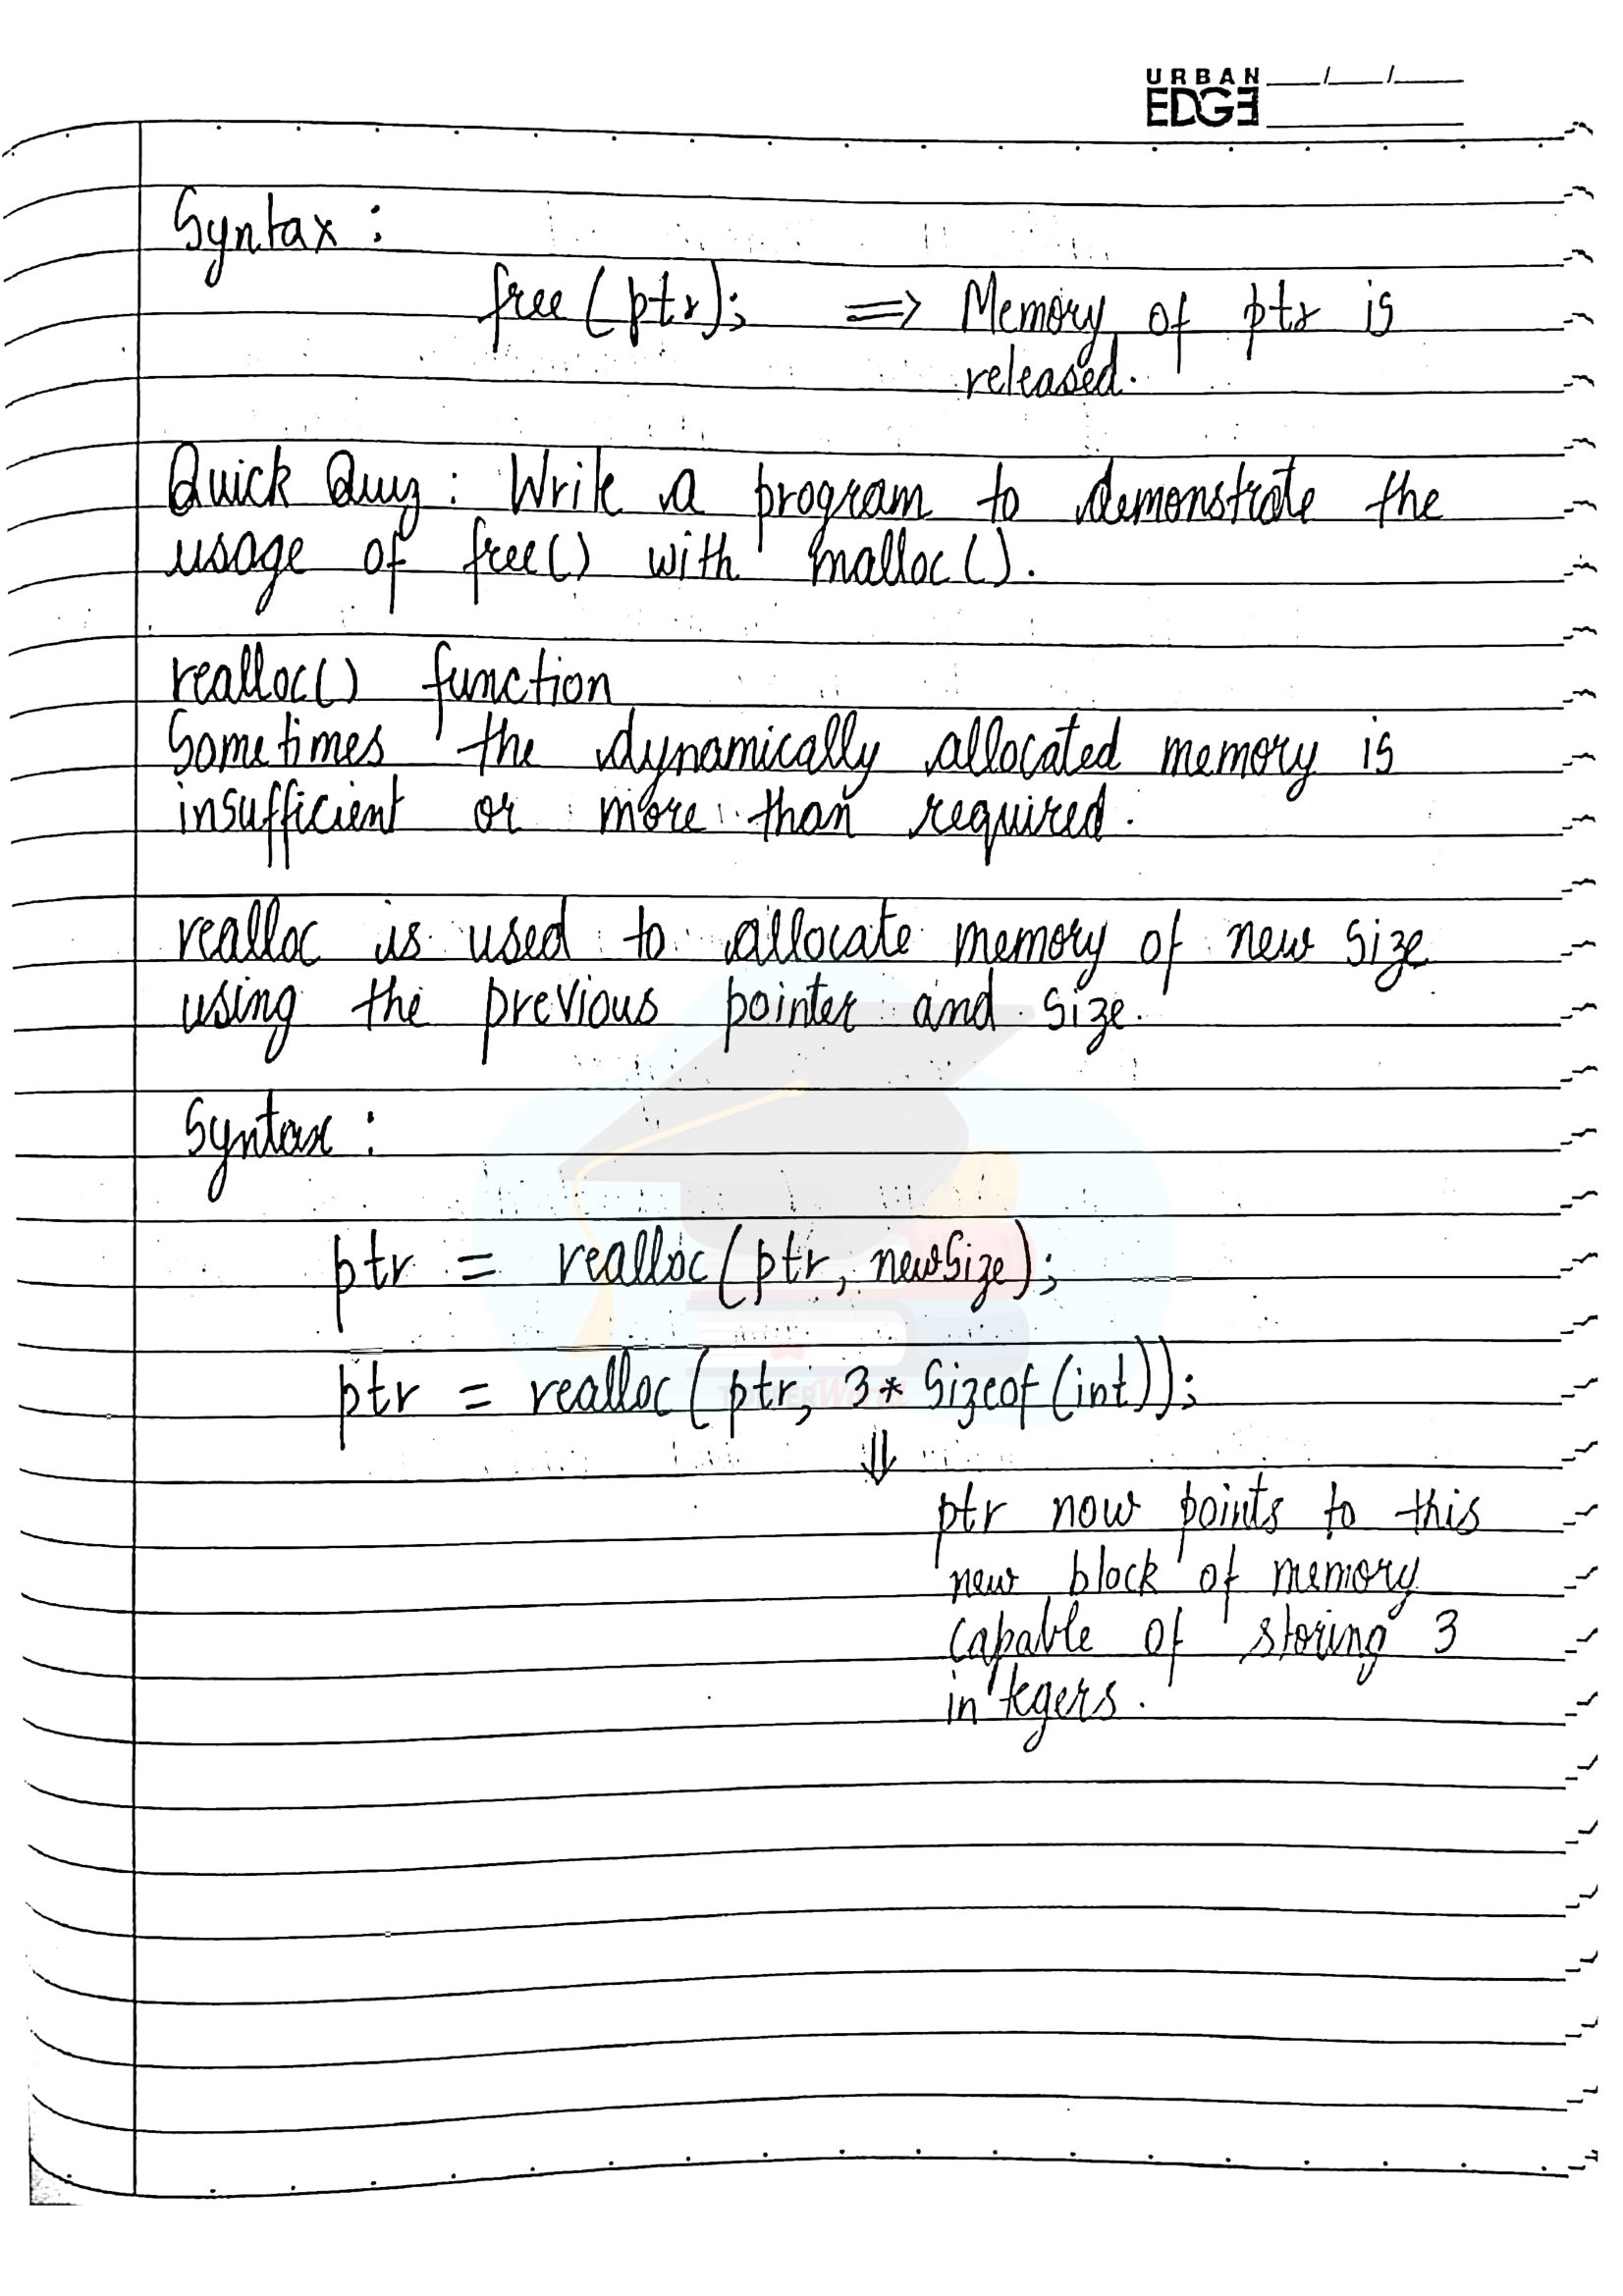 URBAN
EDGE
Syntax :
free (ptr); => Memory of ptr is
released.
Quick Quiz : Write a program to demonstrate the
usage of free() with malloc().
realloc() function
Sometimes the dynamically allocated memory is
insufficient or more than required.
realloc is used to allocate memory of new size
using the previous pointer and size.
Syntax :
ptr = realloc(ptr, newSize);
ptr = realloc(ptr, 3* sizeof(int));
⇓
ptr now points to this
new block of memory
capable of storing 3
integers.